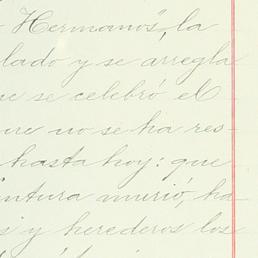 Hermanos", la
lado y se arregla
ue se celebró el
ue no se ha res-
hasta hoy: que
intura murió, ha-
s y herederos los